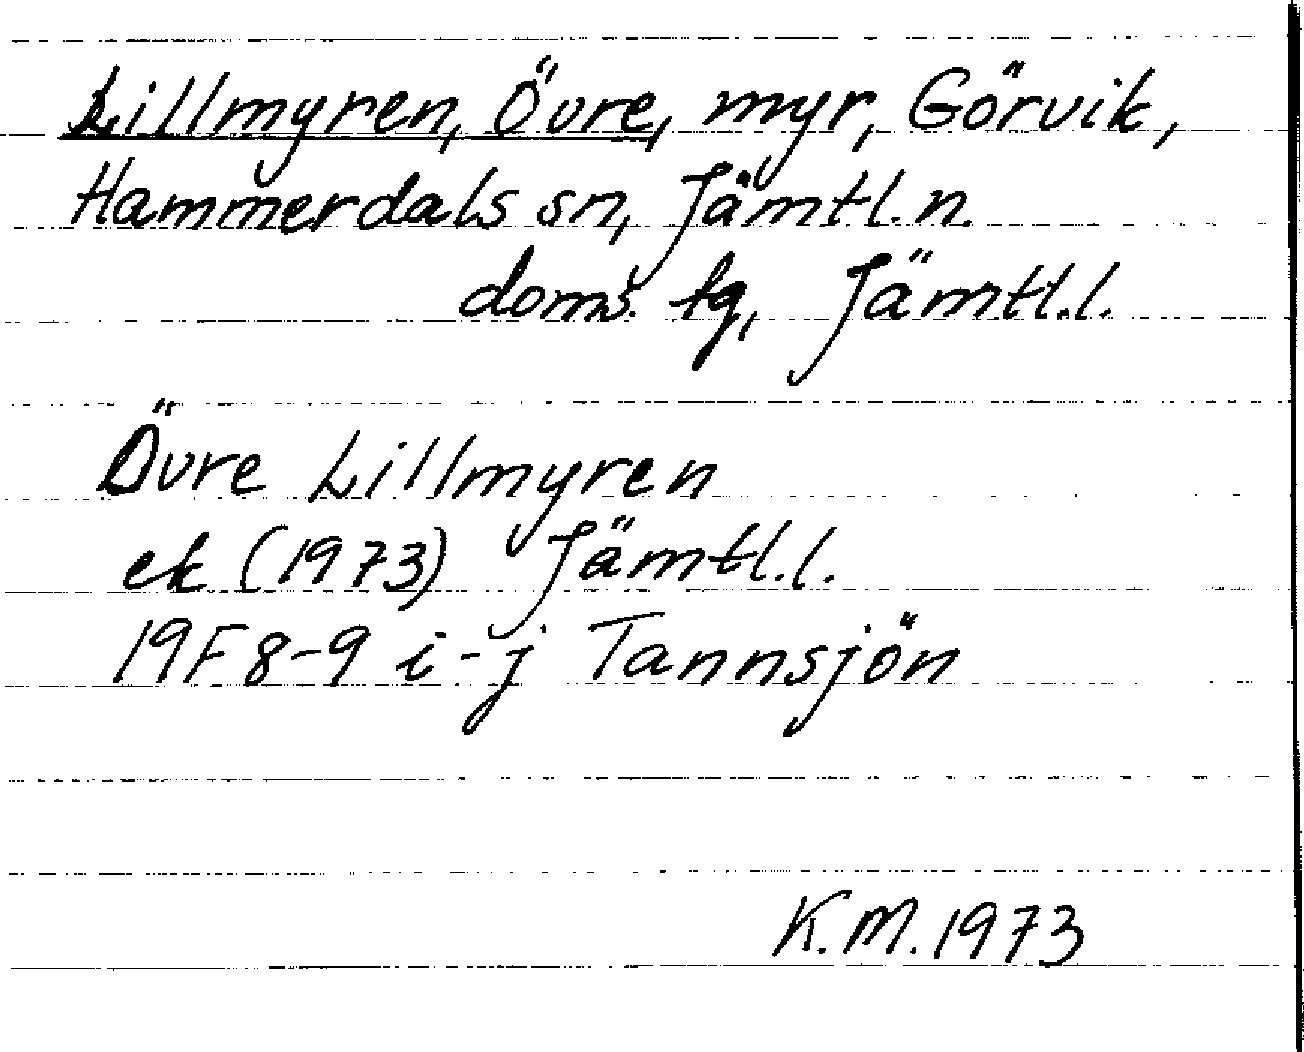 Lillmyren, Övre, myr, Görvik,
Hammerdals sn, Jämtl. n.
doms. tg, Jämtl.l.
Övre Lillmyren
ek (1973) Jämtl.l.
19F 8-9 i-j Tannsjön
K.M. 1973